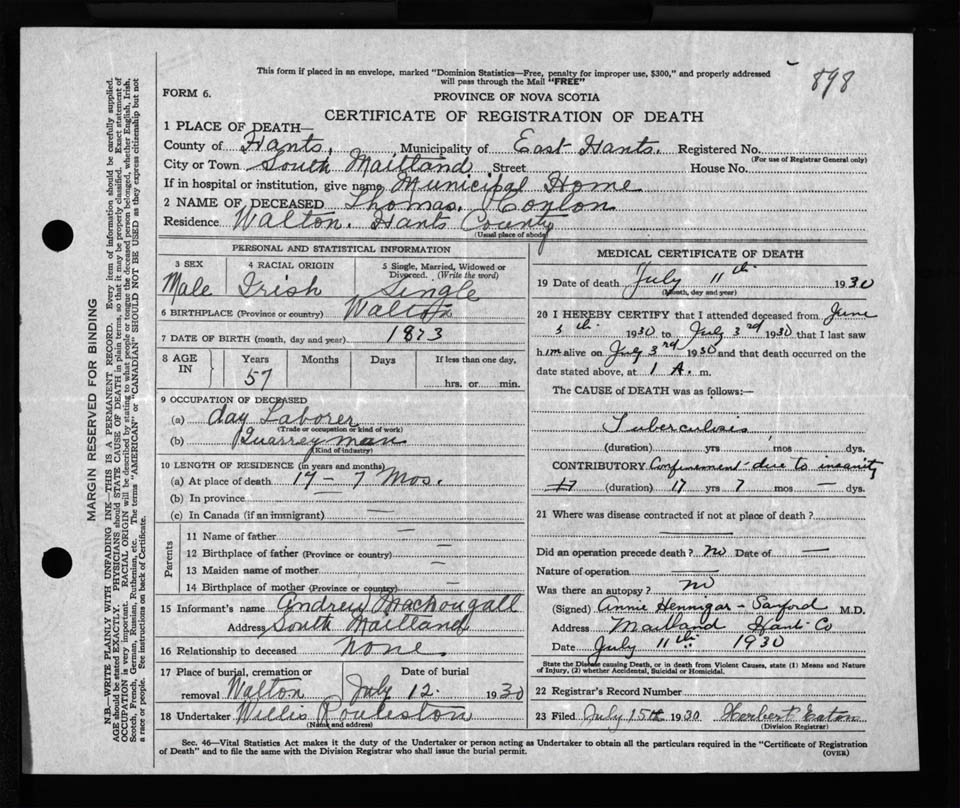 This form if placed in an envelope, marked "Dominion Statistics—Free, penalty for improper use, $300," and properly addressed
will pass through the Mail "FREE"
898
FORM 6.
PROVINCE OF NOVA SCOTIA
CERTIFICATE OF REGISTRATION OF DEATH
1 PLACE OF DEATH—
County of Hants, Municipality of East Hants. Registered No.
(For use of Registrar General only)
City or Town South Maitland Street House No.
If in hospital or institution, give name Municipal Home
2 NAME OF DECEASED Thomas. Conlon
Residence Walton. Hants County
(Usual place of abode)
PERSONAL AND STATISTICAL INFORMATION
3 SEX 4 RACIAL ORIGIN 5 Single, Married, Widowed or
Divorced. (Write the word)
Male Irish Single
6 BIRTHPLACE (Province or country) Walton
7 DATE OF BIRTH (month, day and year) 1873
8 AGE IN Years Months Days If less than one day,
57 hrs. or min.
9 OCCUPATION OF DECEASED
(a) day Laborer
(Trade or occupation or kind of work)
(b) Quarreyman
(Kind of industry)
10 LENGTH OF RESIDENCE (in years and months)
(a) At place of death 17 - 7 Mos.
(b) In province —
(c) In Canada (if an immigrant) —
Parents
11 Name of father —
12 Birthplace of father (Province or country) —
13 Maiden name of mother —
14 Birthplace of mother (Province or country) —
15 Informant's name Andrew MacDougall
Address South Maitland
16 Relationship to deceased None
17 Place of burial, cremation or Date of burial
removal Walton July 12. 1930
18 Undertaker Willis
(Name and address)
MEDICAL CERTIFICATE OF DEATH
19 Date of death July 11th 1930
(Month, day and year)
20 I HEREBY CERTIFY that I attended deceased from June
5th 1930 to July 3rd 1930 that I last saw
him alive on July 3rd 1930 and that death occurred on the
date stated above, at 1 A. m.
The CAUSE of DEATH was as follows:—
Tuberculosis,
(duration) yrs. mos. dys.
CONTRIBUTORY Confinement due to insanity
17 (duration) 17 yrs 7 mos — dys.
21 Where was disease contracted if not at place of death?
Did an operation precede death? no Date of —
Nature of operation —
Was there an autopsy? no
(Signed) Annie Hennigar - Sanford M.D.
Address Maitland Hants Co
Date July 11th 1930
State the Disease causing Death, or in death from Violent Causes, state (1) Means and Nature
of Injury, (2) whether Accidental, Suicidal or Homicidal.
22 Registrar's Record Number
23 Filed July 15th 1930 Herbert Eaton
(Division Registrar)
Sec. 46—Vital Statistics Act makes it the duty of the Undertaker or person acting as Undertaker to obtain all the particulars required in the "Certificate of Registration
of Death" and to file the same with the Division Registrar who shall issue the burial permit.
(OVER)
MARGIN RESERVED FOR BINDING
N.B.—WRITE PLAINLY WITH UNFADING INK—THIS IS A PERMANENT RECORD. Every item of information should be carefully supplied.
AGE should be stated EXACTLY. PHYSICIANS should STATE CAUSE OF DEATH in plain terms, so that it may be properly classified. Exact statement of
OCCUPATION is very important. RACIAL ORIGIN will be described by stating to what people or tongue the deceased person belonged, whether English, Irish,
Scotch, French, German, Russian, Ruthenian, etc. The terms "AMERICAN" or "CANADIAN" SHOULD NOT BE USED as they express citizenship but not
a race or people. See instructions on back of Certificate.